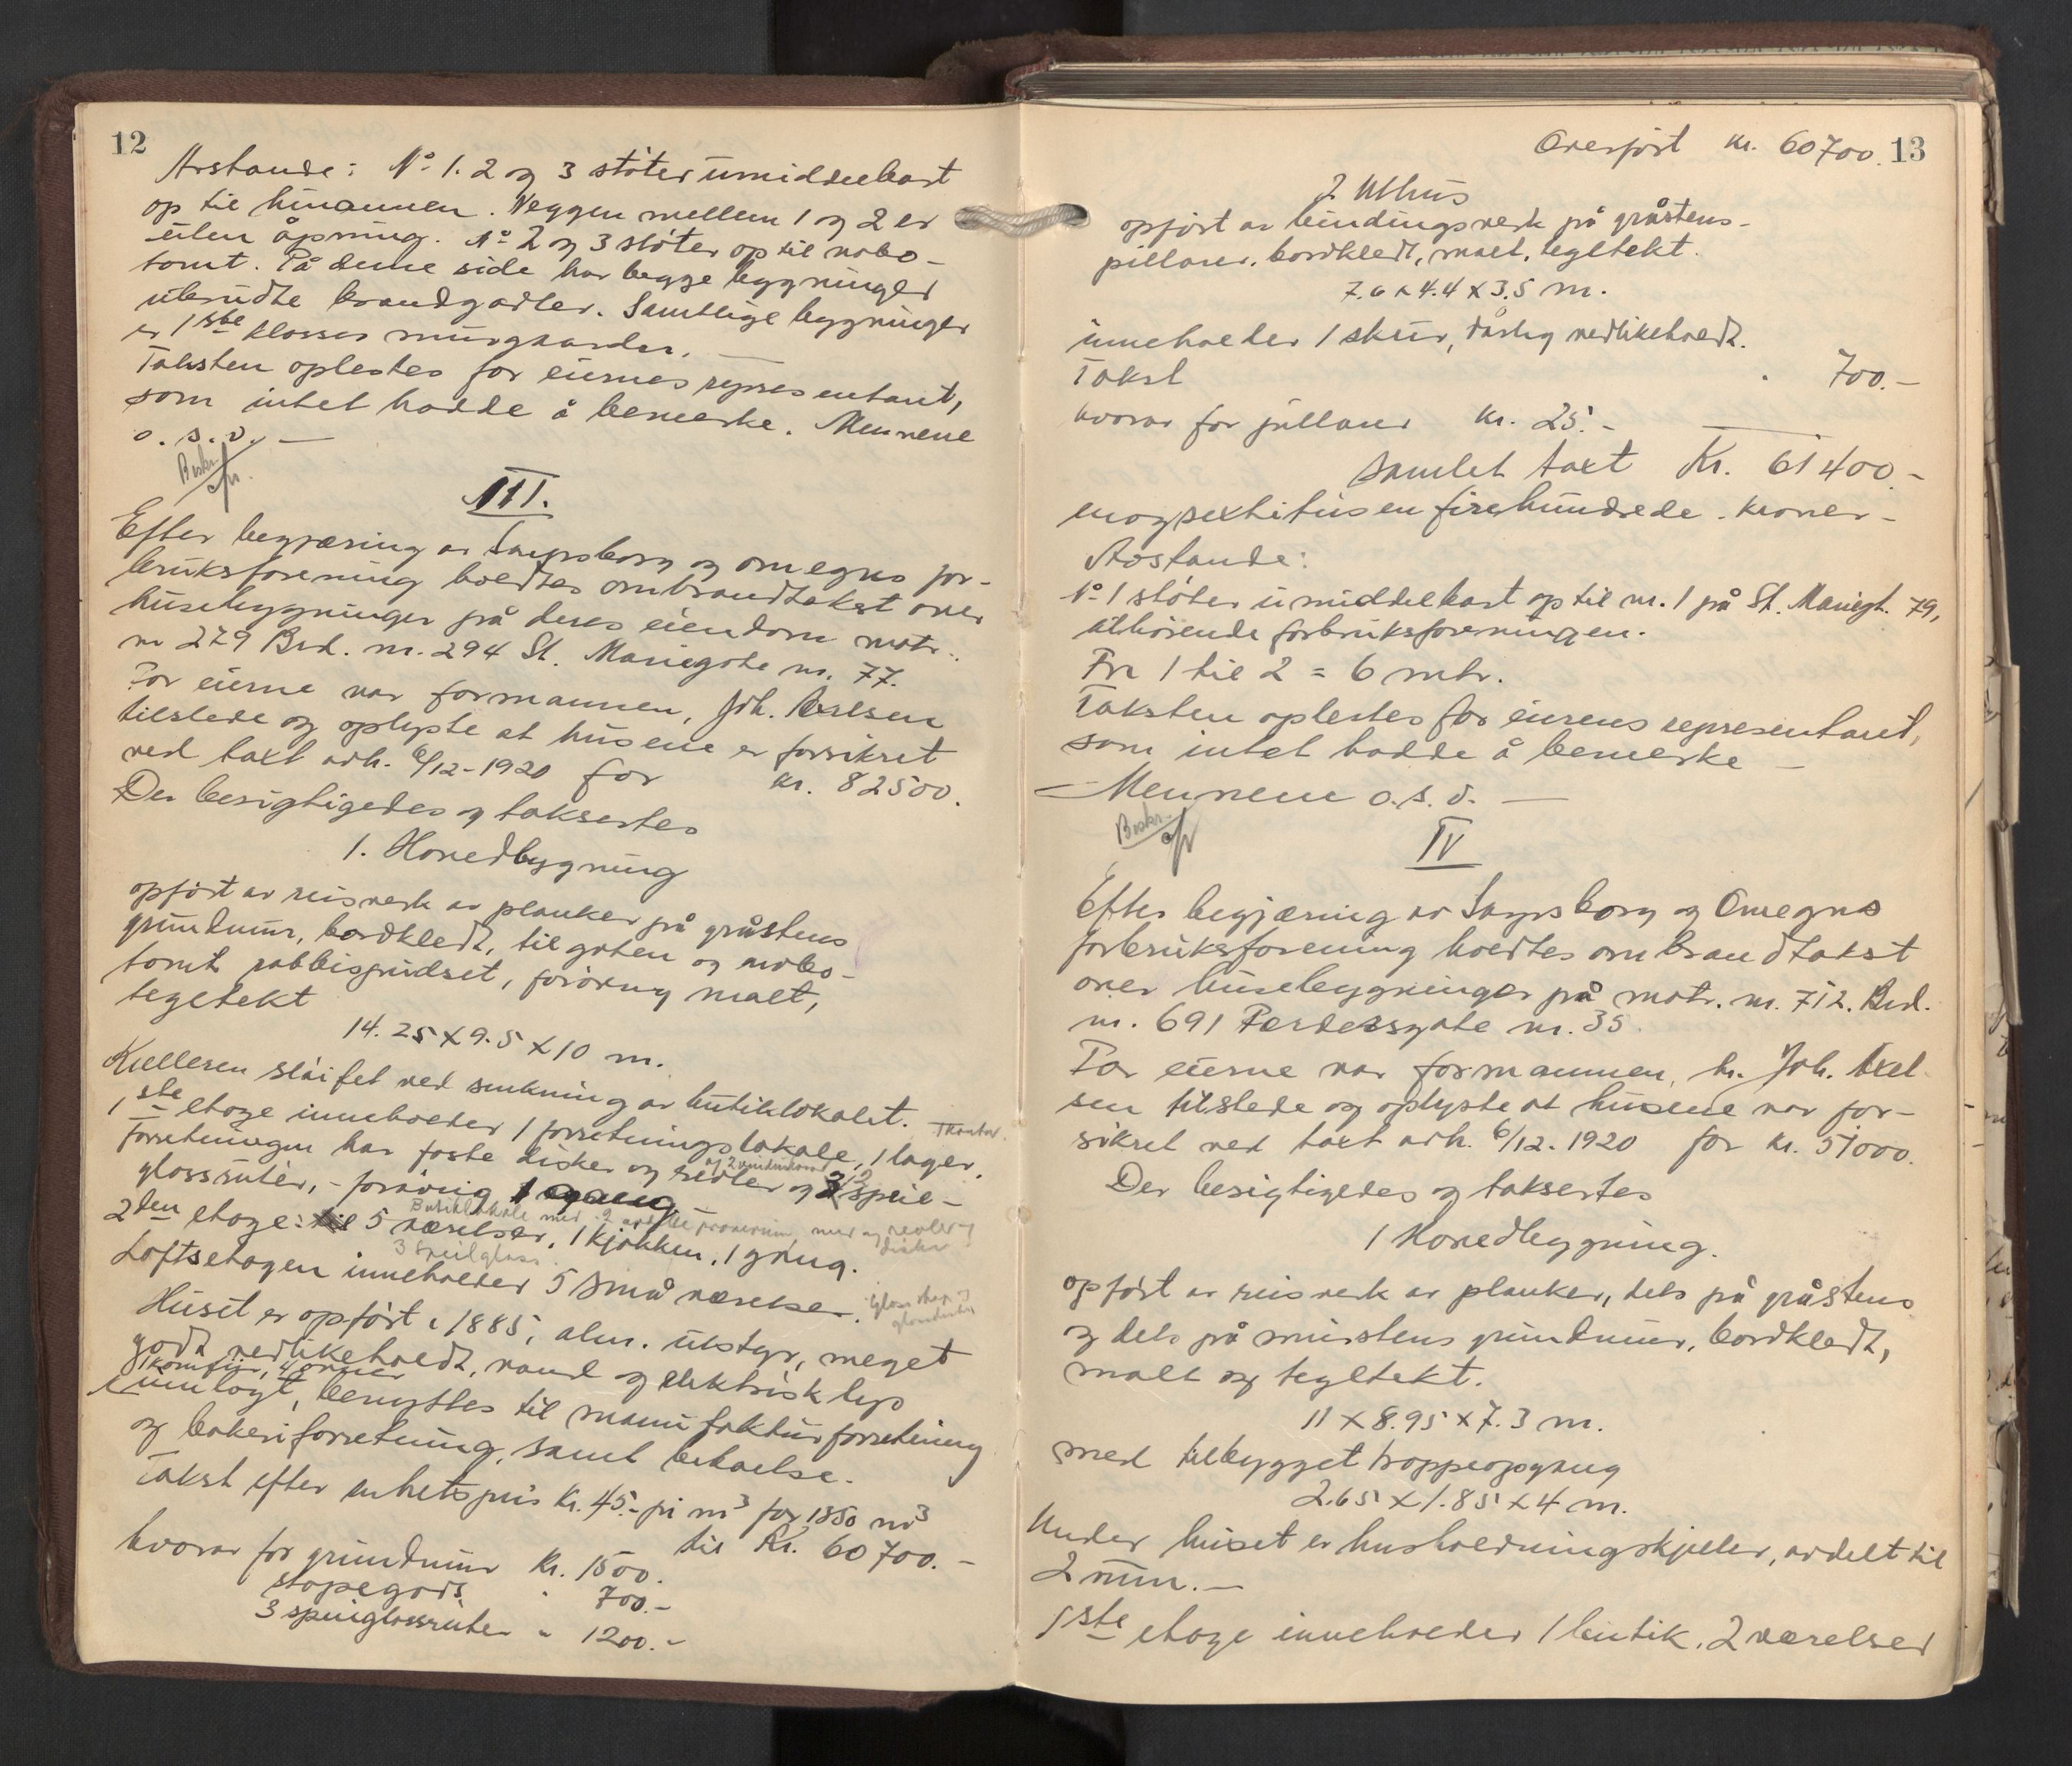 12
Avstande: No 1. 2 og 3 støter umiddelbart
op til hinannen. Veggen mellem 1 og 2 er
uten åpning. No 2 og 3 støter op til nabo-
tomt. På denne side har begge bygninger
ubrudte brandgavler. Samtlige bygninger
er 1ste klasses murgaarder. —
Taksten oplestes for eiernes representant,
som intet hadde å bemerke. Mennene
o. s. v. —
Beskr.
III.
Efter begjæring av Sarpsborg og omegns for-
bruksforening holdtes ombrandtakst over
husebygninger på deres eiendom matr.
nr 279 Brd. nr. 294 St. Mariegate nr. 77.
For eierne var formannen, Joh. Axelsen
tilstede og oplyste at husene er forsikret
ved taxt avh. 6/12-1920 for kr. 82500.
Der besigtigedes og taksertes
1. Hovedbygning
opført av reisverk av planker på gråstens
grundmur, bordkledt, til gaten og nabo-
tomt rabbispudset, forøvrig malt,
tegltekt
14.25 X 9.5 X 10 m.
Kjelleren sløifet ved senkning av butiklokalet.
1ste etage inneholder 1 forretningslokale, 1 lager. 1 kontor.
Forretningen har faste disker og reoler og 3 speil-
glassruter, - forøvrig 1 gang
Butiklokale med 2
2den etage: 5 værelser, 1 kjøkken, 1 gang.
3 Speilglass.
Loftsetagen inneholder 5 små værelser.
Huset er opført i 1885, alm. utstyr, meget
godt vedlikeholdt, vand og elektrisk lys
1 komfur, 4 ovner
innlagt, benyttes til manufakturforretning
og bakeriforretning, samt beboelse.
Takst efter enhetspris kr. 45.- pr m3 for 1350 m3
til Kr. 60700.-
hvorav for grundmur kr. 1500.
støpegods " 700.-
3 speilglassruter " 1200.-
13
Overført kr. 60700.
2 Uthus
opført av bindingsverk på gråstens-
pillarer, bordkledt, malt, tegltekt.
7.6 X 4.4 X 3.5 m.
inneholder 1 skur, dårlig vedlikeholdt.
Takst " 700.-
hvorav for pillarer kr. 25.-
Samlet taxt Kr. 61400.-
enogsextitusen firehundrede kroner-
Avstande:
No 1 støter umiddelbart op til nr. 1 på St.Ариegt. 79,
tilhørende forbruksforeningen.
Fra 1 til 2 = 6 mtr.
Taksten oplestes for eierens representant,
som intet hadde å bemerke —
— Mennene o. s. v. —
Beskr.
IV
Efter begjæring av Sarpsborg og Omegns
forbruksforening holdtes ombrandtakst
over husebygninger på matr. nr. 712. Brd.
nr. 691 Pærdersgate nr. 35.
For eierne var formannen, hr. Joh. Axel-
sen tilstede og oplyste at husene var for-
sikret ved taxt avh. 6/12. 1920 for kr. 51000.
Der besigtigedes og taksertes
1 Hovedbygning.
opført av reisverk av planker, dels på gråstens
og dels på murstens grundmur, bordkledt,
malt og tegltekt.
11 X 8.95 X 7.3 m.
med tilbygget trappeopgang
2.65 X 1.85 X 4 m.
Under huset er husholdningskjeller, avdelt til
2 rum. —
1ste etage inneholder 1 butik, 2 værelser